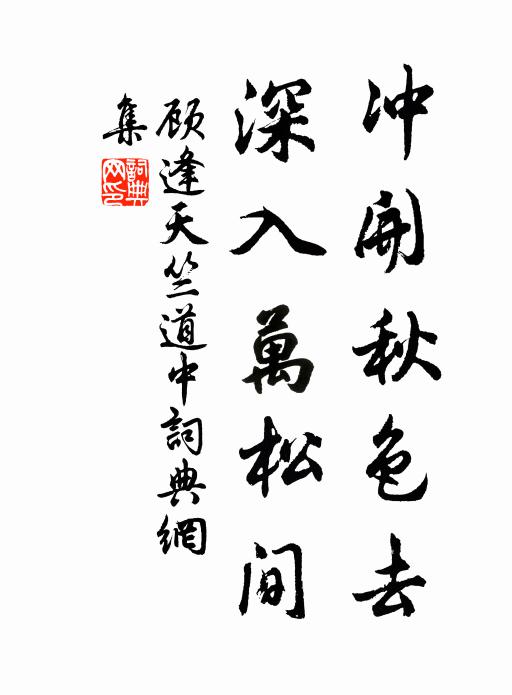 冲開秋色去
深入萬松间
顾逢天竺道中詞典網
集
詞典網印